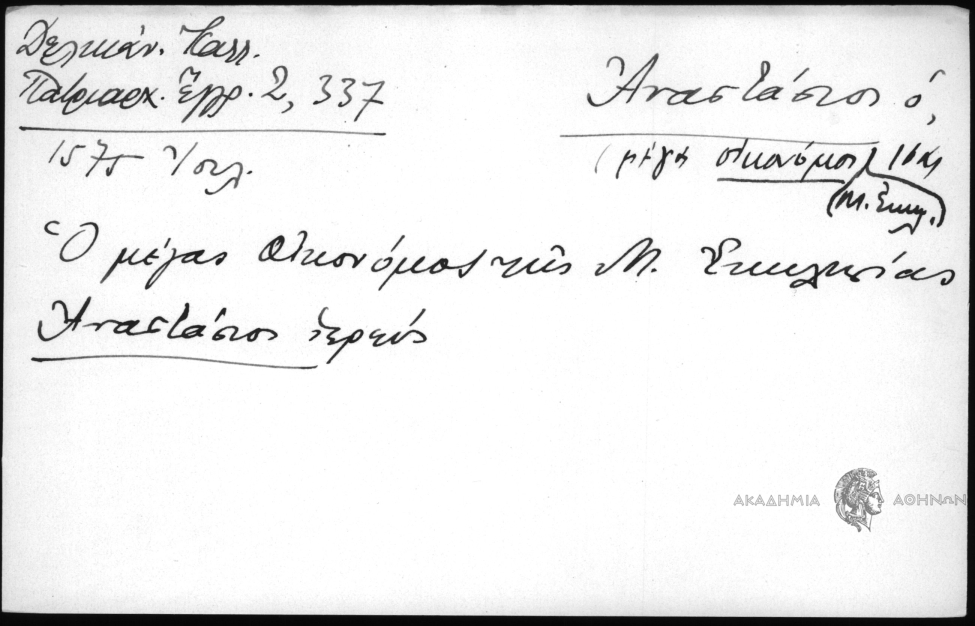 Δελικάν. Καλλ.
Πατριαρχ. Ἔγγρ. 2, 337
1575 Ἰουλ.
Ἀναστάσιος ὁ,
(μέγας οἰκονόμος) 16 αι
(Μ. Ἐκκλ.)
Ὁ μέγας Οἰκονόμος τῆς Μ. Ἐκκλησίας
Ἀναστάσιος ἱερεύς
ΑΚΑΔΗΜΙΑ ΑΘΗΝΩΝ